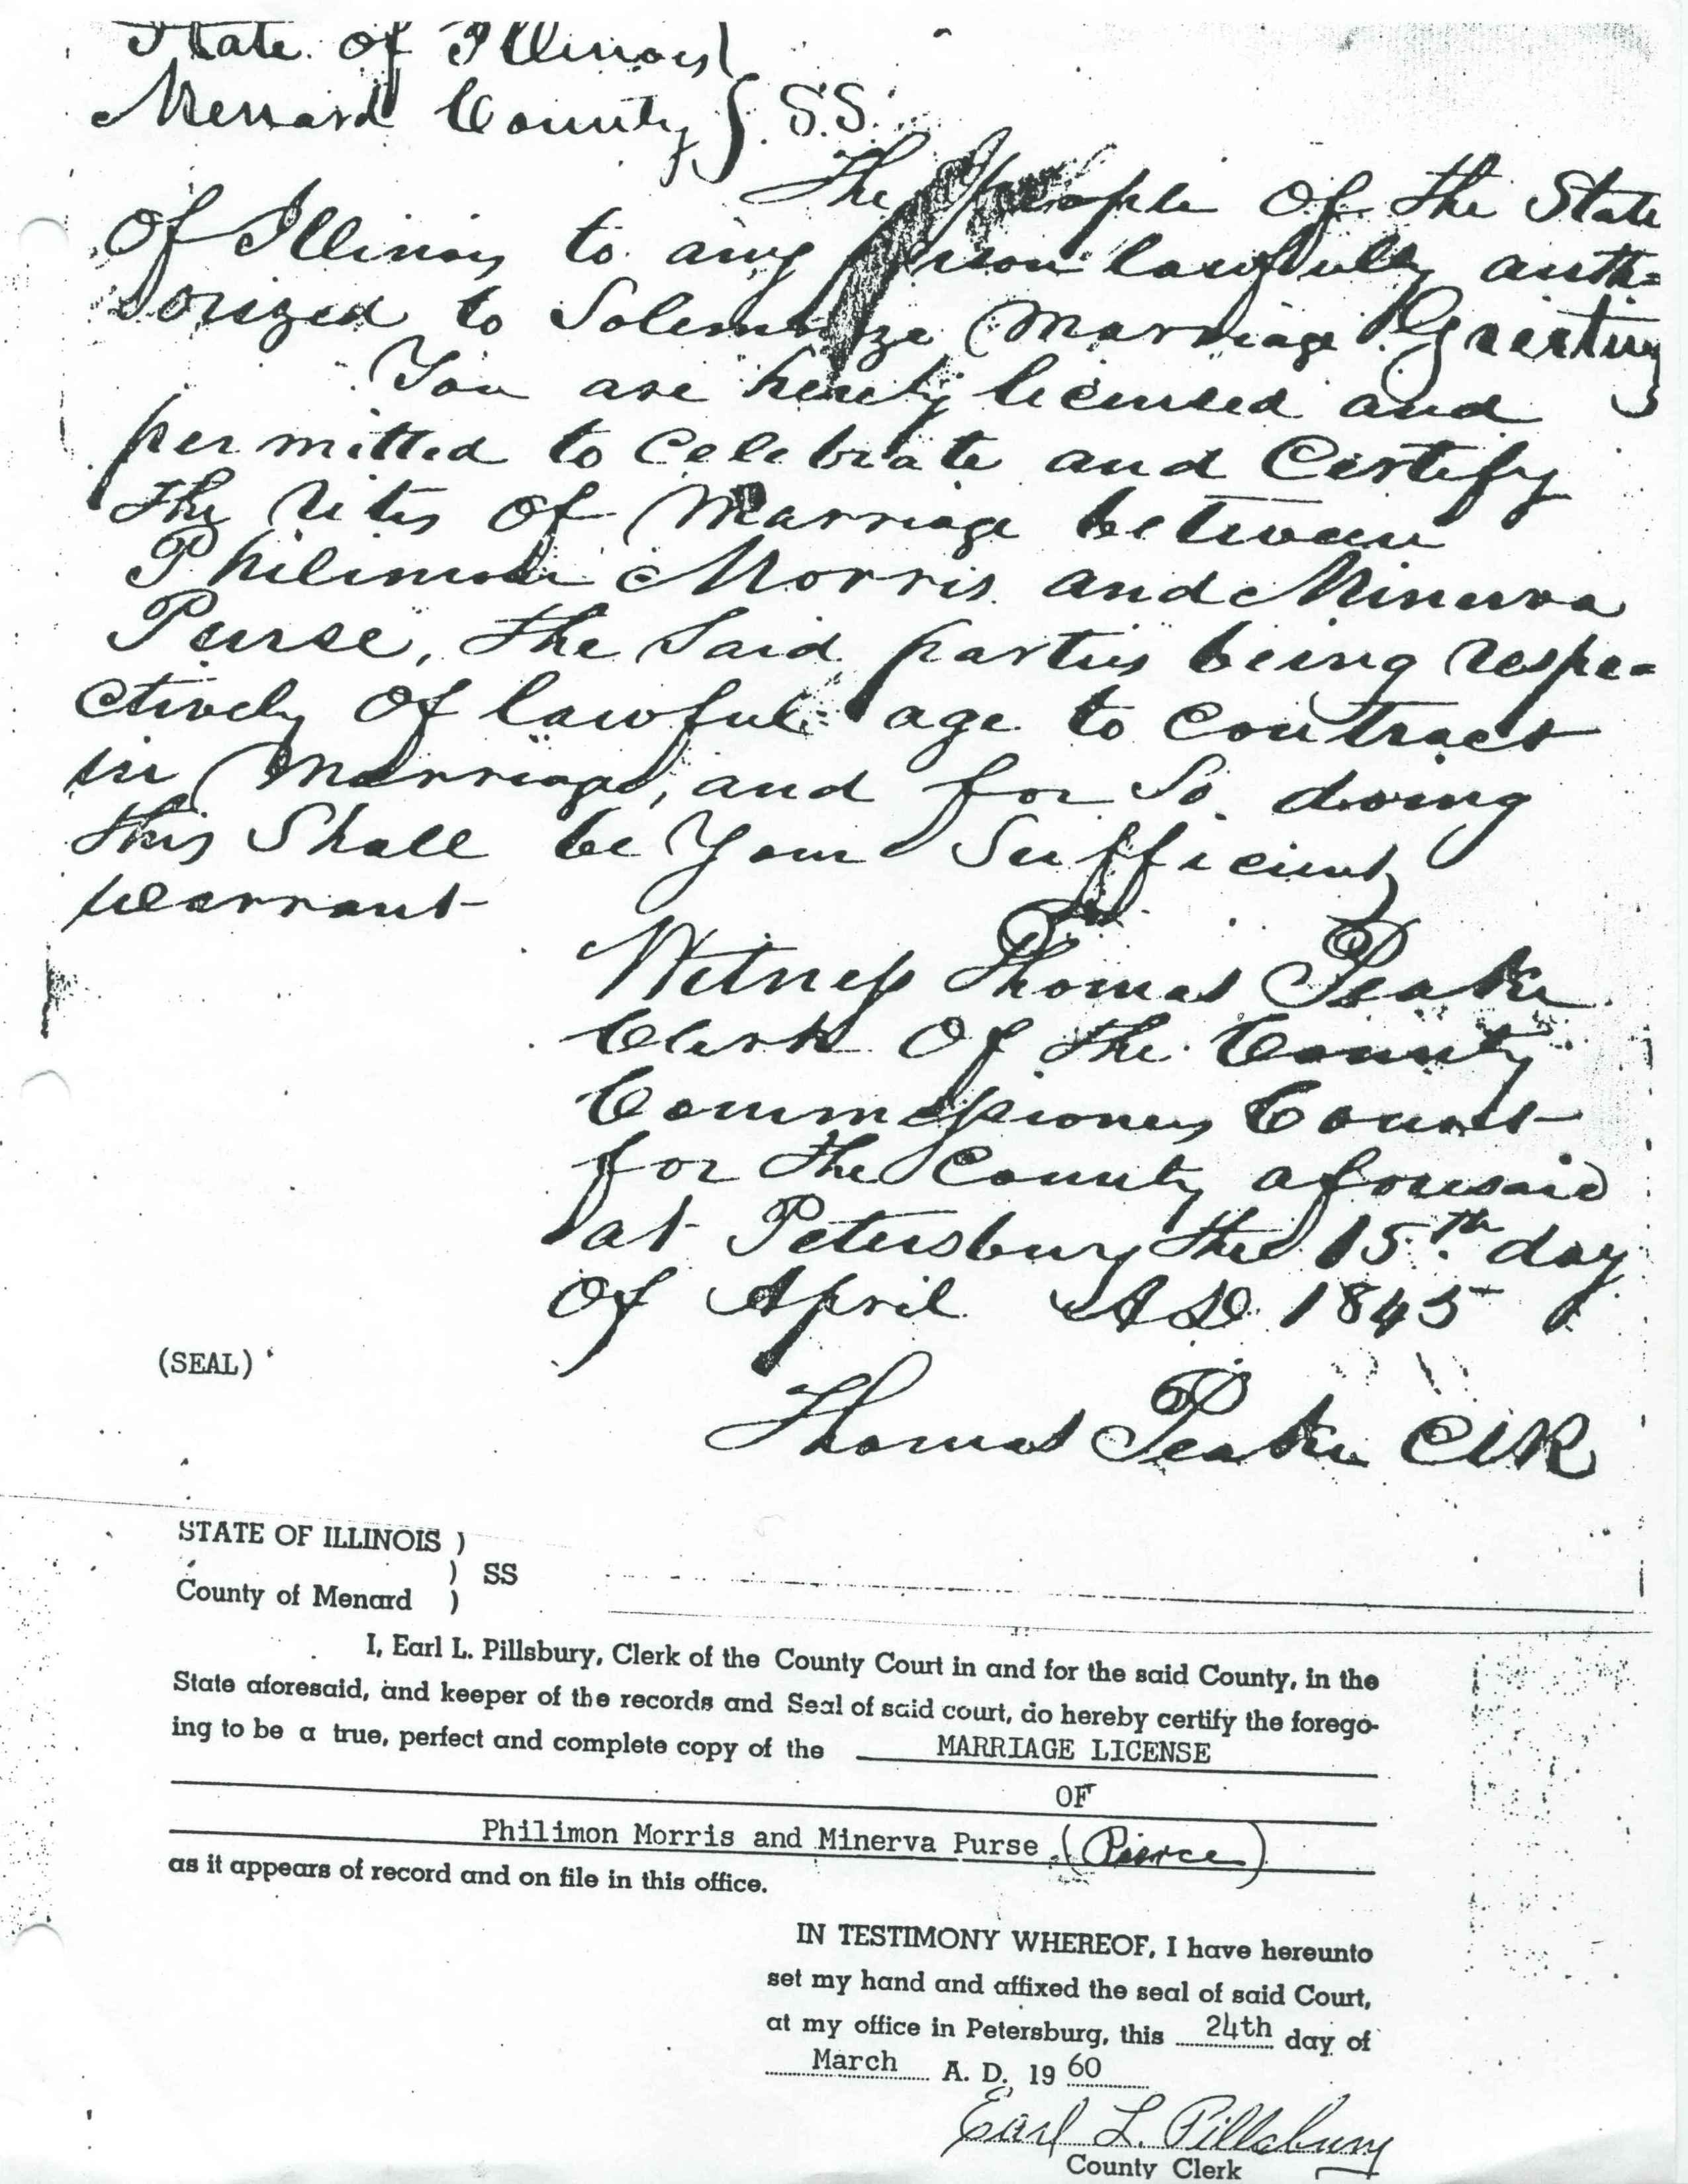 State of Illinois )
Menard County } S.S.
The People of the State
Of Illinois to any person lawfully auth=
orized to Solemnize Marriage Greeting
You are hereby licensed and
permitted to Celebrate and Certify
the rites of Marriage between
Philimon Morris and Minerva
Purse, the Said parties being respe=
ctively of lawful age to Contract
in Marriage, and for So doing
this Shall be Your Sufficient
warrant
Witness Thomas Peake
Clerk Of the County
Commissioners Court
for the County aforesaid
at Petersburg the 15th day
Of April AD 1845
(SEAL)
Thomas Peake ClK
STATE OF ILLINOIS )
) SS
County of Menard )
I, Earl L. Pillsbury, Clerk of the County Court in and for the said County, in the
State aforesaid, and keeper of the records and Seal of said court, do hereby certify the forego-
ing to be a true, perfect and complete copy of the MARRIAGE LICENSE
OF
Philimon Morris and Minerva Purse (Pierce)
as it appears of record and on file in this office.
IN TESTIMONY WHEREOF, I have hereunto
set my hand and affixed the seal of said Court,
at my office in Petersburg, this 24th day of
March A. D. 19 60
Earl L. Pillsbury
County Clerk